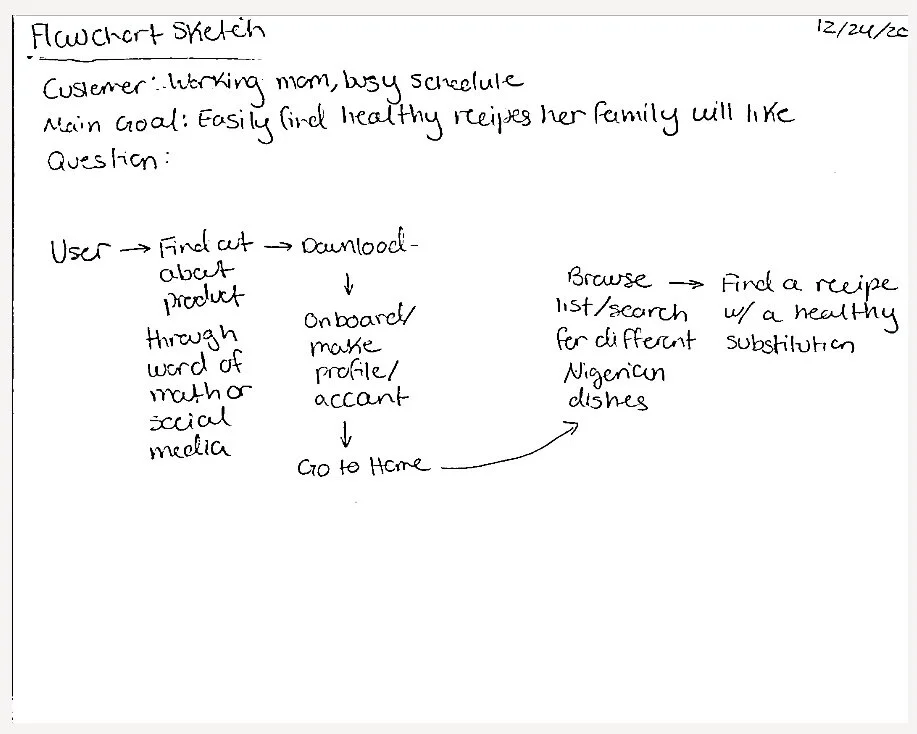 Flowchart Sketch
12/24/20
Customer: Working mom, busy schedule
Main Goal: Easily find healthy recipes her family will like
Question:
User → Find out → Download
about
product
through
word of
mouth or
social
media
↓
Onboard/
make
profile/
account
↓
Go to Home
Browse → Find a recipe
list/search w/ a healthy
for different substitution
Nigerian
dishes